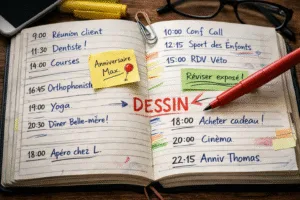 9:00 Réunion client
11:30 Dentiste!
14:00 Courses
Anniversaire
Max
16:45 Orthophoniste
19:00 Yoga
20:30 Dîner Belle-mère!
18:00 Apéro chez L
10:00 Conf Call
12:15 Sport des Enfants
15:00 RDV Véto
Réviser exposé!
DESSIN
18:00 Acheter cadeau!
20:00 Cinéma
22:15 Anniv Thomas